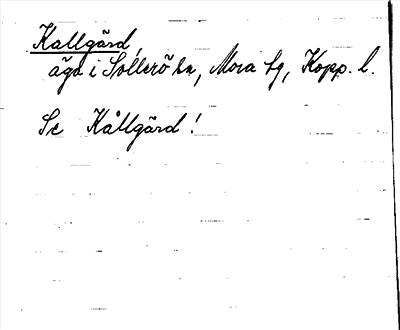 Kallgård,
äga i Sollerö sn, Mora tg, Kopp. l.
Se Kållgård!